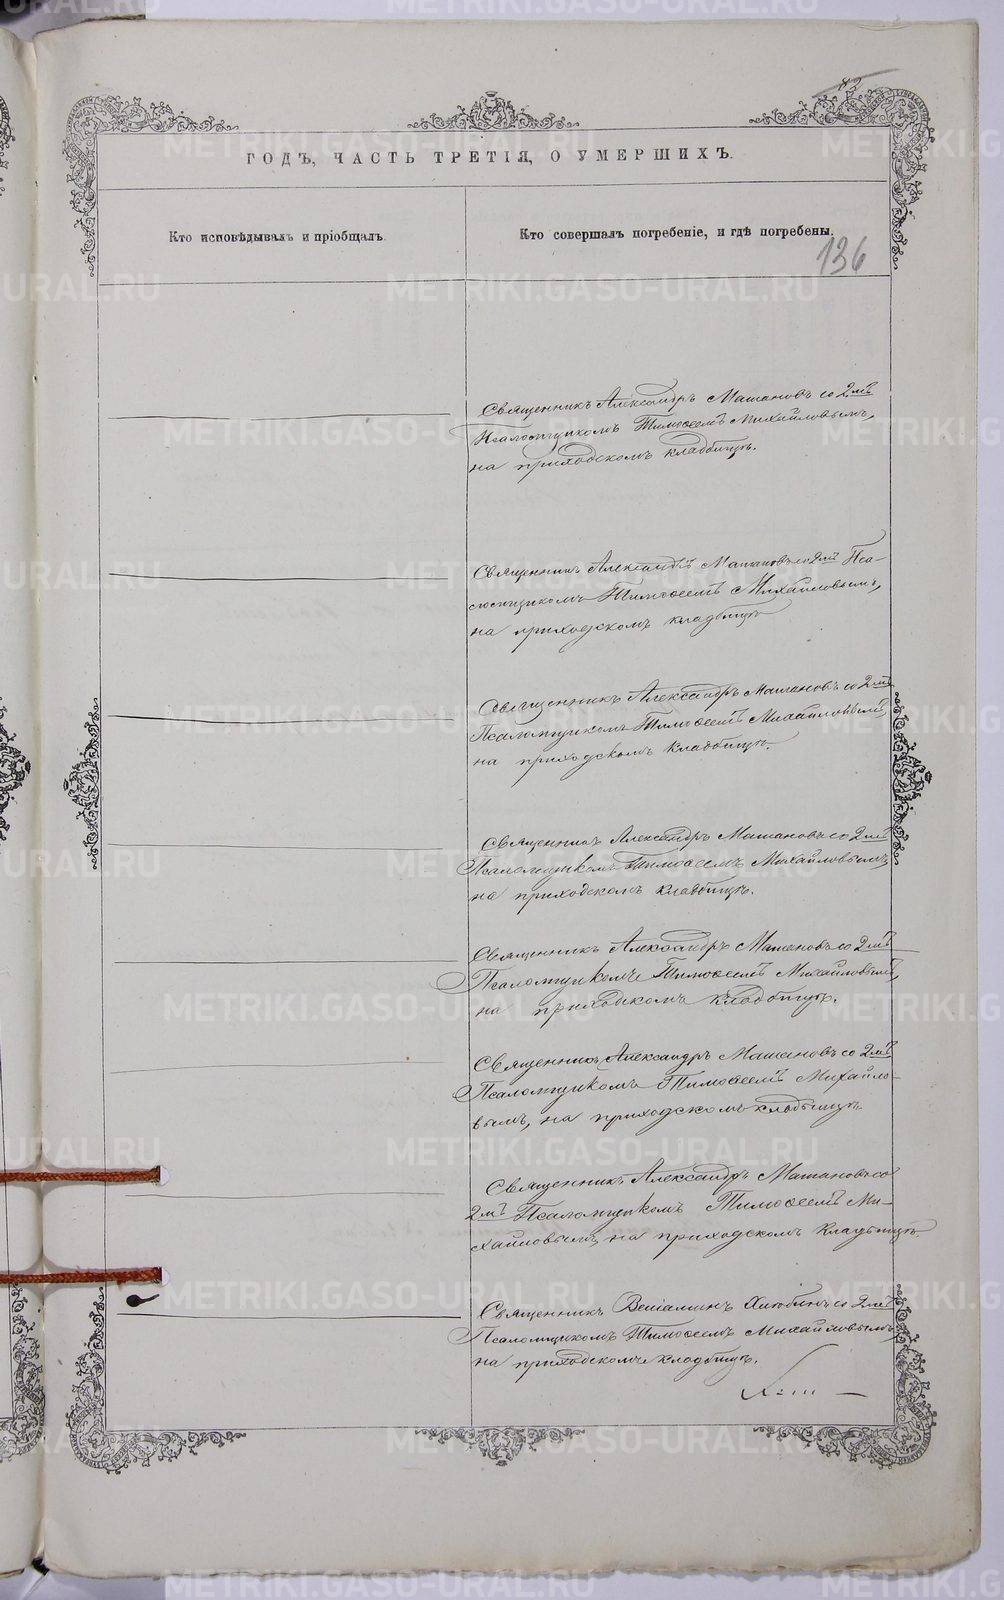 ГОДЪ, ЧАСТЬ ТРЕТІЯ, О УМЕРШИХЪ.
Кто исповѣдывалъ и пріобщалъ.
Кто совершалъ погребеніе, и гдѣ погребены.
136
Священникъ Александръ Машановъ со 2мъ
Псаломщикомъ Тимоѳеемъ Михайловымъ,
на приходскомъ кладбищѣ.
Священникъ Александръ Машановъ со 2мъ Пса-
ломщикомъ Тимоѳеемъ Михайловымъ,
на приходскомъ кладбищѣ
Священникъ Александръ Машановъ со 2мъ
Псаломщикомъ Тимоѳеемъ Михайловымъ,
на приходскомъ кладбищѣ.
Священникъ Александръ Машановъ со 2мъ
Псаломщикомъ Тимоѳеемъ Михайловымъ,
на приходскомъ кладбищѣ.
Священникъ Александръ Машановъ со 2мъ
Псаломщикомъ Тимоѳеемъ Михайловымъ,
на приходскомъ кладбищѣ.
Священникъ Александръ Машановъ со 2мъ
Псаломщикомъ Тимоѳеемъ Михайло-
вымъ, на приходскомъ кладбищѣ.
Священникъ Александръ Машановъ со
2мъ Псаломщикомъ Тимоѳеемъ Ми-
хайловымъ, на приходскомъ кладбищѣ.
Священникъ Веніаминъ Хлюбинъ со 2мъ
Псаломщикомъ Тимоѳеемъ Михайловымъ,
на приходскомъ кладбищѣ.
METRIKI.GASO-URAL.RU